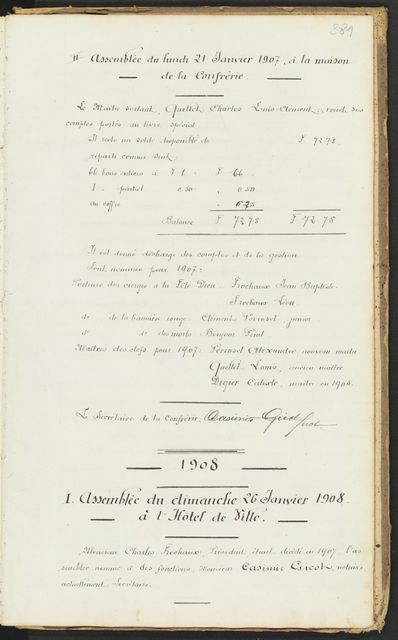 381
II Assemblée du lundi 21 Janvier 1907, à la maison
de la Confrérie.
Le Maître sortant, Quellet Charles Louis Clément, rend ses
comptes portés au livre spécial.
Il reste un solde disponible de F 72.75
réparti comme suit:
66 bons entiers à F 1.- F 66.-
1 - partiel 0.50 " 0.50
au coffre " 6.25
Balance F 72.75 F 72.75
Il est donné décharge des comptes et de la gestion.
Sont nommés pour 1907:
Porteurs des cierges à la Fête Dieu: Frochaux Jean Baptiste
Frochaux Léon
d° de la bannière rouge: Clément Perroset junior
d° d° des morts Bonjour Paul
Maîtres des clefs pour 1907: Perroset Alexandre, nouveau maître
Quellet Louis, ancien maître
Digier Calixte, maître en 1906.
Le Secrétaire de la Confrérie: Casimir Gicot
1908
I. Assemblée du dimanche 26 Janvier 1908.
à l'Hôtel de Ville.
Monsieur Charles Frochaux, Président étant décédé en 1907, l'as-
semblée nomme à des fonctions, Monsieur Casimir Gicot, notaire,
actuellement Secrétaire.